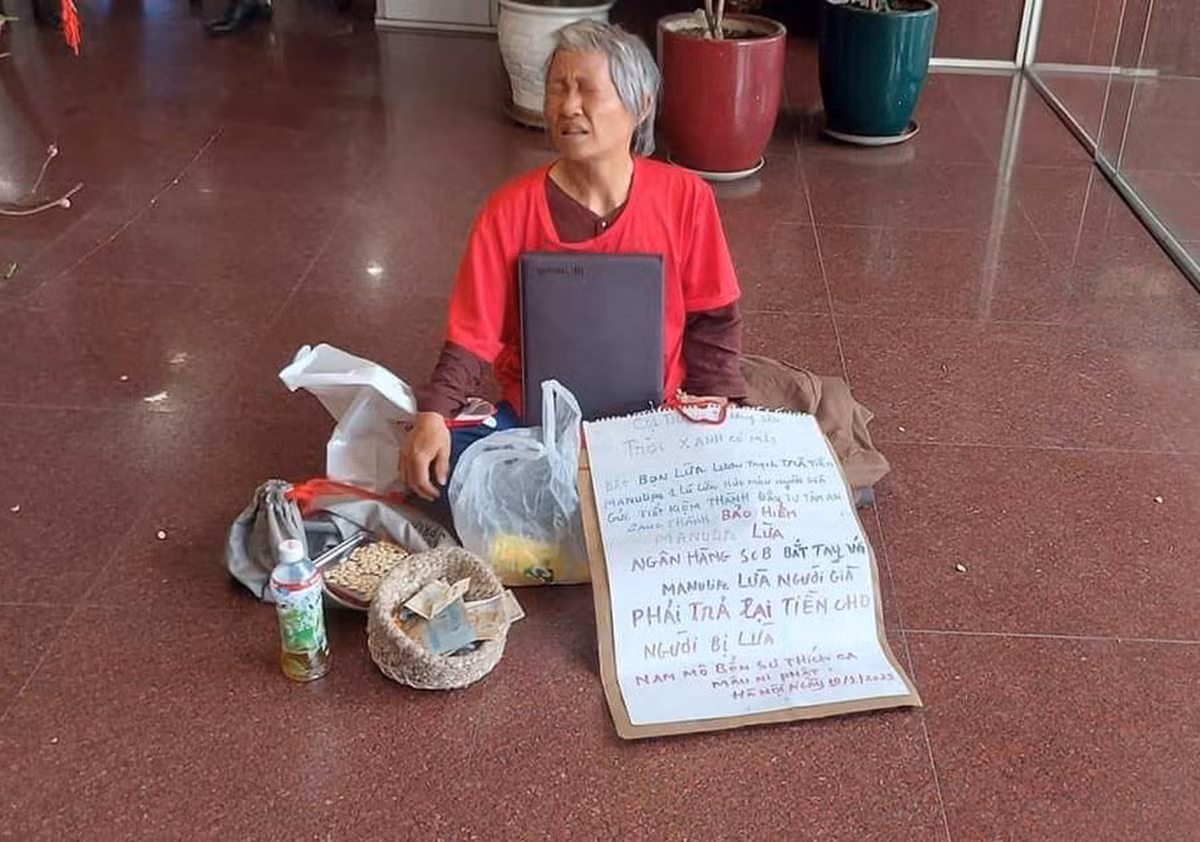 TRỜI XANH CÓ MẮT
BÁO BỌN LỪA TRẢ TIỀN
MANULIFE LỪA HÚT MÁU NGƯỜI GIÀ
GỬI TIẾT KIỆM THÀNH ĐẦU TƯ TÂM AN
THÀNH BẢO HIỂM
MANULIFE LỪA
NGÂN HÀNG SCB BẮT TAY VỚI
MANULIFE LỪA NGƯỜI GIÀ
PHẢI TRẢ LẠI TIỀN CHO
NGƯỜI BỊ LỪA
NAM MÔ BỔN SƯ THÍCH CA
MÂU NI PHẬT
HÀ NỘI NGÀY